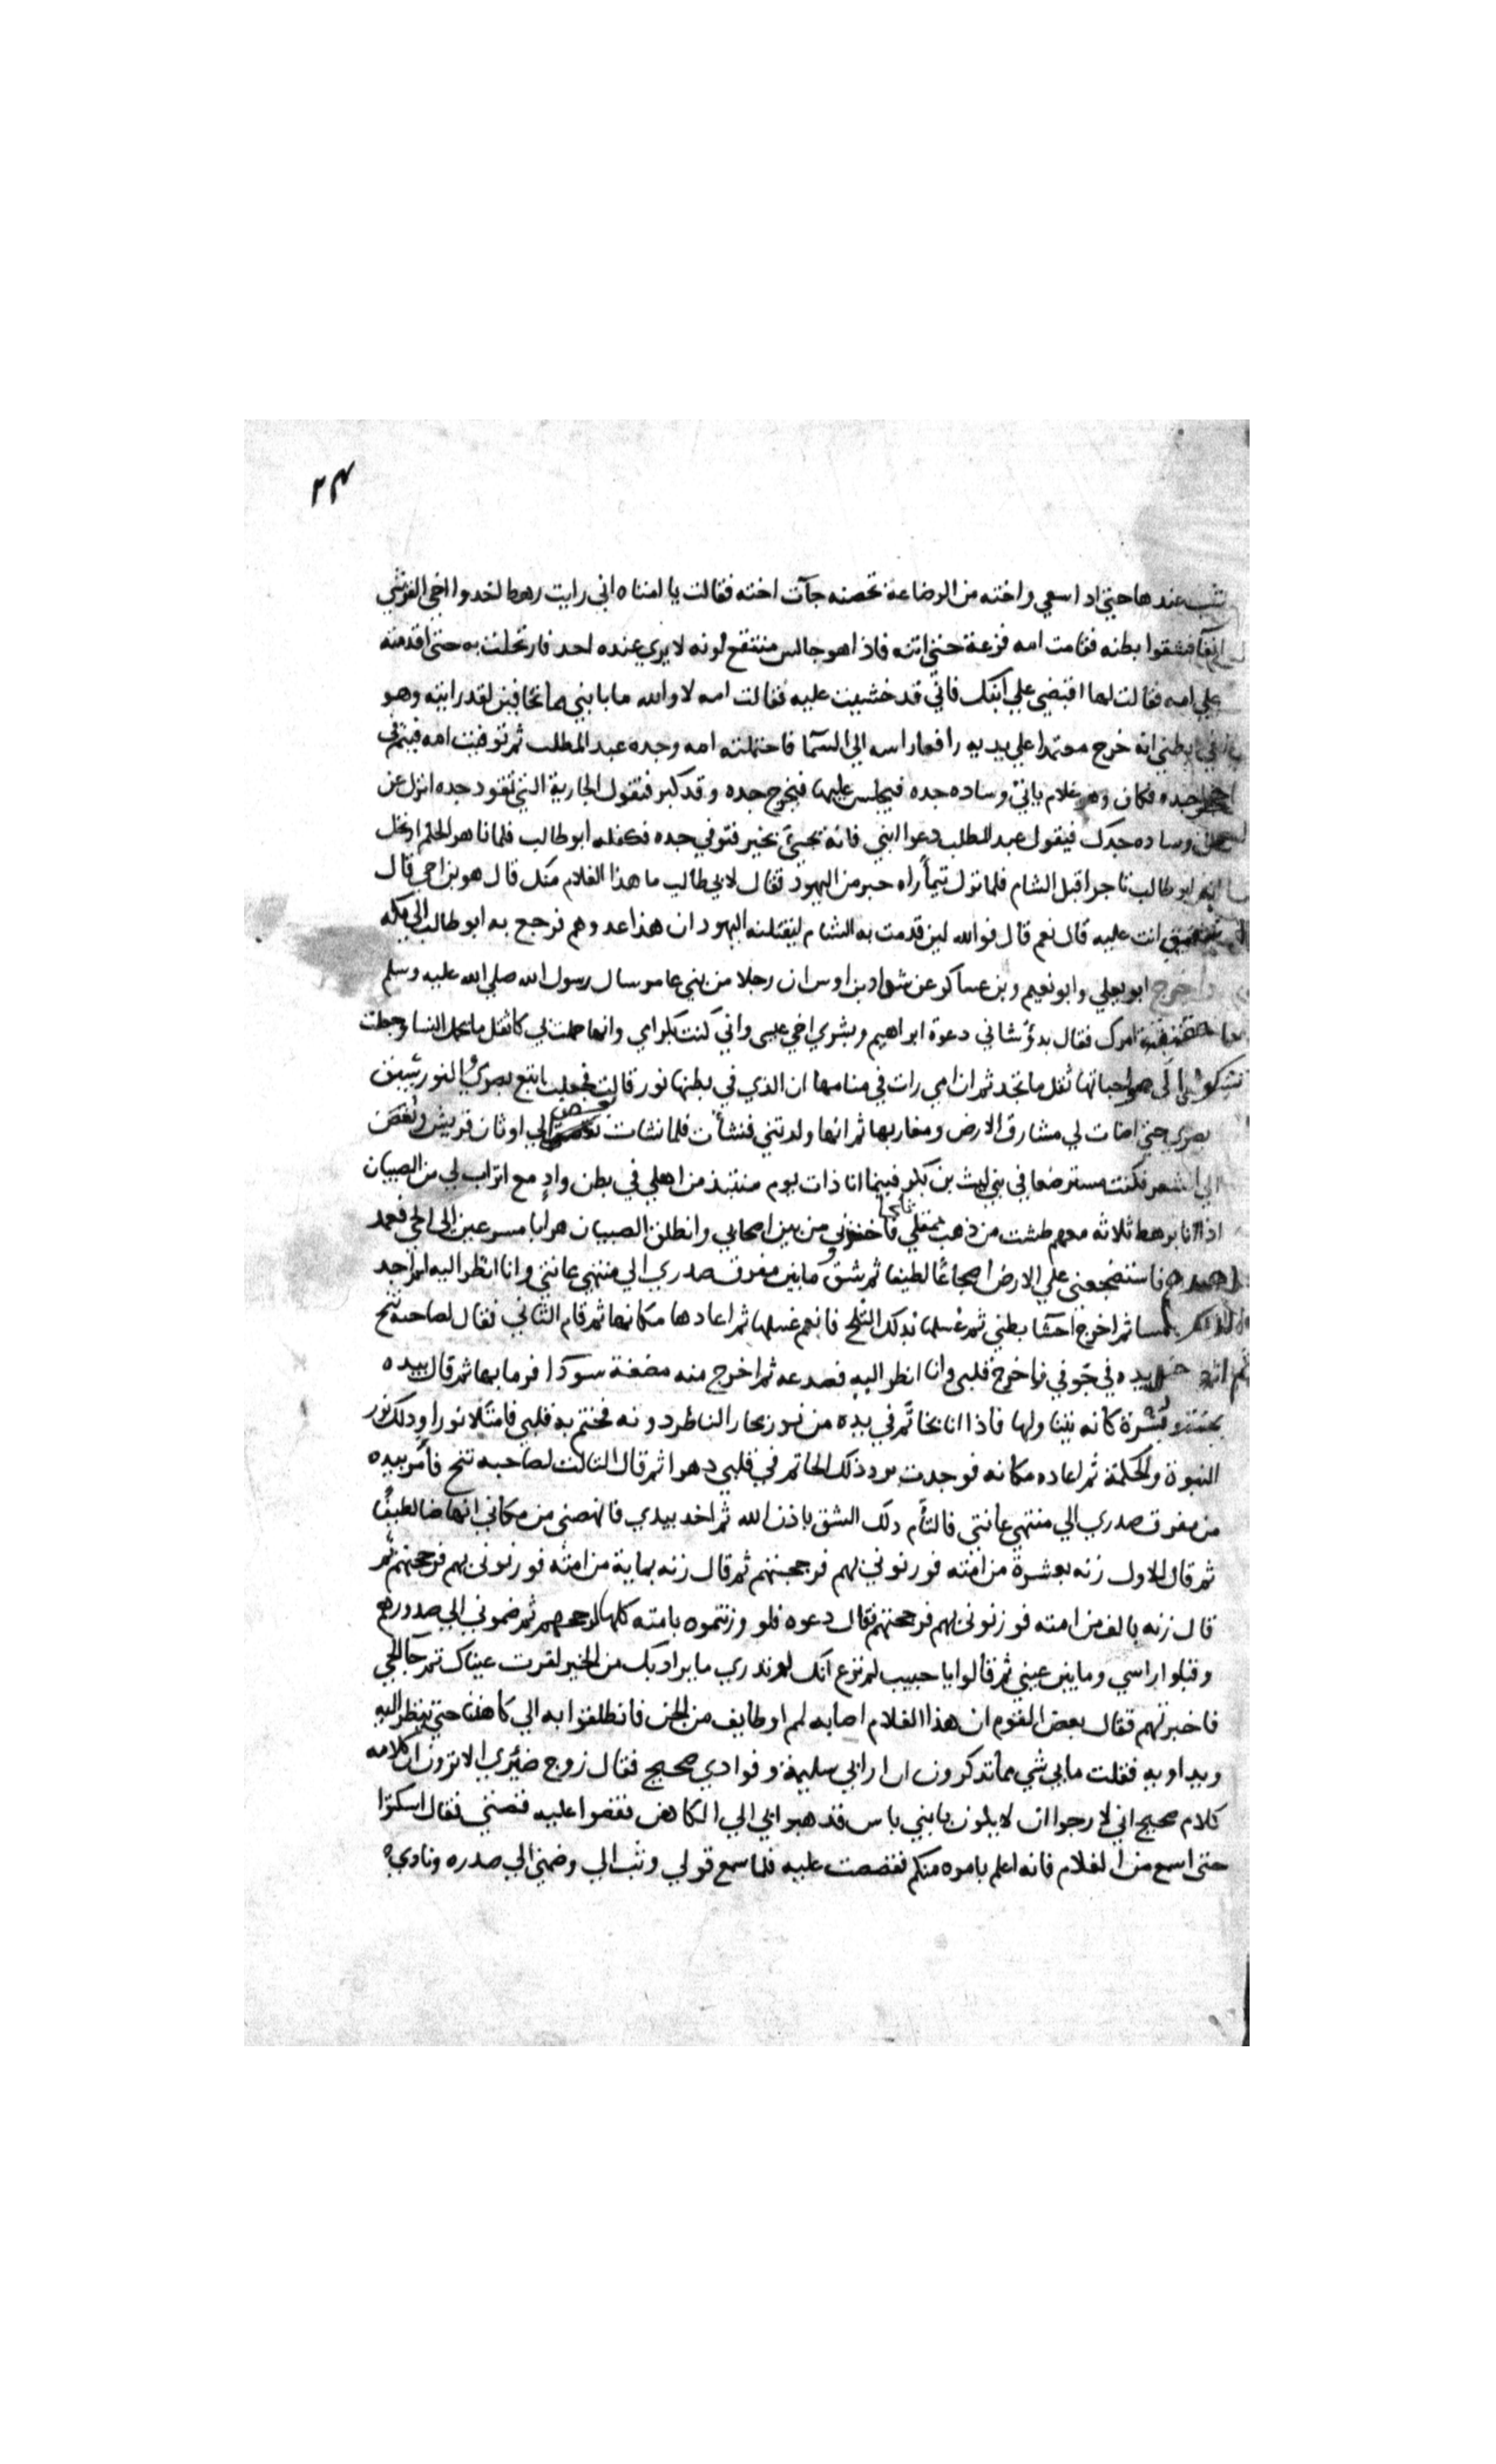 ٢٣
شب عندها حتي اذا سعي واخته من الرضاعة تحضنه جآت اخته فقالت يا امتاه اني رايت رهطا اخذوا اخي القرشي
انفا فشقوا بطنه فقامت امه فزعة حتي اتته فاذا هو جالس منتقع لونه لا يري عنده احد فارتحلت به حتي اقدمته
علي امه فقالت لها اقبضي علي ابنك فاني قد خشيت عليه فقالت امه لا والله ما بابني مما تخافين لقد رايته وهو
في بطني انه خرج معتمدا علي يديه رافعا راسه الي السمآ فاحتملته امه وجده عبد المطلب ثم توفيت امه فيتم في
حجر جده فكان وهو غلام ياتي وساده جده فيجلس عليها فيخرج جده وقد كبر فتقول الجارية التي تقود جده انزل عن
وساده جدك فيقول عبد المطلب دعوا ابني فانه بحس بخير فتوفي جده فكفله ابو طالب فلما ناهز الحلم ارتحل
به ابو طالب تاجرا قبل الشام فلما نزل تيمآ راه حبر من اليهود فقال لابي طالب ما هذا الغلام منك قال هو بن اخي قال
انت عليه قال نعم قال فوالله لين قدمت به الشام ليقتلنه اليهود ان هذا عدوهم فرجع به ابو طالب الي مكه
واخرج ابو يعلي وابو نعيم وبن عساكر عن شداد بن اوس ان رجلا من بني عامر سال رسول الله صلي الله عليه وسلم
ما امرك فقال بدؤ شاني دعوة ابراهيم وبشري اخي عيسى واني كنت بكر امي وانها حملت بي كاثقل ما تحمل النسا وجعلت
تشكوا الي صواحباتها ثقل ما تجد ثم ان امي رات في منامها ان الذي في بطنها نور قالت فجعلت اتبع بصري النور يسبق
بصري حتي اضات لي مشارق الارض ومغاربها ثم انها ولدتني فنشأت فلما نشات بغض الي اوثان قريش وبغض
الي الشعر فكنت مسترضعا في بني ليث بن بكر فبينما انا ذات يوم منتبذ من اهلي في بطن وادٍ مع اتراب لي من الصبيان
اذا انا برهط ثلاثه معهم طشت من ذهب ممتلي ثلجا فاخذوني من بين اصحابي وانطلق الصبيان هرابا مسرعين الي الحي فعمد
احدهم فاستضجعني علي الارض اضجاعا لطيفا ثم شق ما بين مفرق صدري الي منتهي عانتي وانا انظر اليه لم اجد
لذلك مسا ثم اخرج احشا بطني ثم غسلها بذلك الثلج فانعم غسلها ثم اعادها مكانها ثم قام الثاني فقال لصاحبه تنح
ثم ادخل يده في جوفي فاخرج قلبي وانا انظر اليه فصدعه ثم اخرج منه مضغة سودا فرما بها ثم قال بيده
يمنة ويسرة كانه يتناولها فاذا انا بخاتم في يده من نور يحار الناظر دونه فختم به قلبي فامتلا نورا وذلك نور
النبوة والحكمة ثم اعاده مكانه فوجدت برد ذلك الخاتم في قلبي دهرا ثم قال الثالث لصاحبه تنح فأمر بيده
من مفرق صدري الي منتهي عانتي فالتأم ذلك الشق باذن الله ثم اخذ بيدي فانهضني من مكاني انهاضا لطيفا
ثم قال للاول زنه بعشرة من امته فوزنوني بهم فرجحتهم ثم قال زنه بماية من امته فوزنوني بهم فرجحتهم ثم
قال زنه بالف من امته فوزنوني بهم فرجحتهم فقال دعوه فلو وزنتموه بامته كلها لرجحهم ثم ضموني الي صدورهم
وقبلوا راسي وما بين عيني ثم قالوا يا حبيب لم ترع انك لو تدري ما يراد بك من الخير لقرت عيناك ثم جآ الحي
فاخبرتهم فقال بعض القوم ان هذا الغلام اصابه لمم او طايف من الجن فانطلقوا به الي كاهننا حتي ينظر اليه
ويداويه فقلت ما بي شي مما تذكرون ان ارابي سليمة وفوادي صحيح فقال زوج ضئري الا ترون ان كلامه
كلام صحيح اني لارجوا ان لا يكون بابني باس فذهبوا بي الي الكاهن فقصوا عليه قصتي فقال اسكتوا
حتي اسمع من الغلام فانه اعلم بامره منكم فقصصت عليه فلما سمع قولي وثب الي وضمني الي صدره ونادي